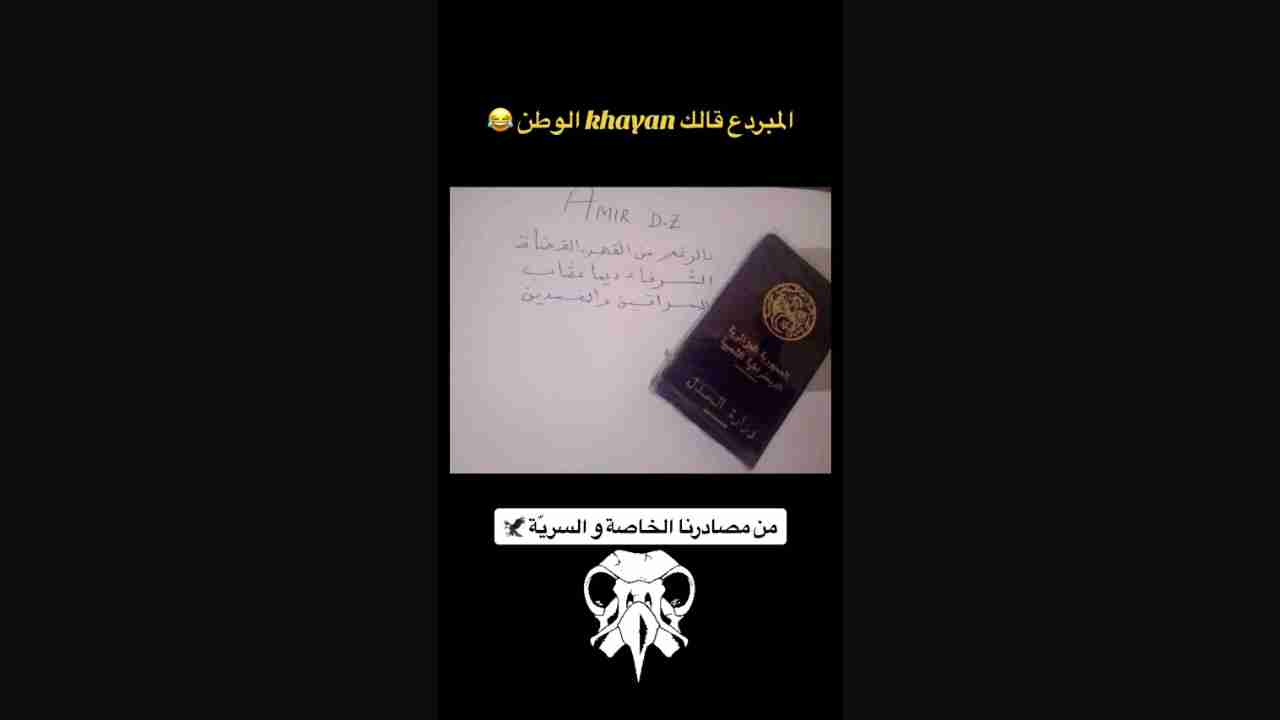 المبردع قالك khayan الوطن 😂
AMIR D.Z
بالرغم من القهر
الشرفاء ديما عقاب
السراقين والفسدين
الجمهورية الجزائرية
الديمقراطية الشعبية
وزارة العدل
من مصادرنا الخاصة و السريّة